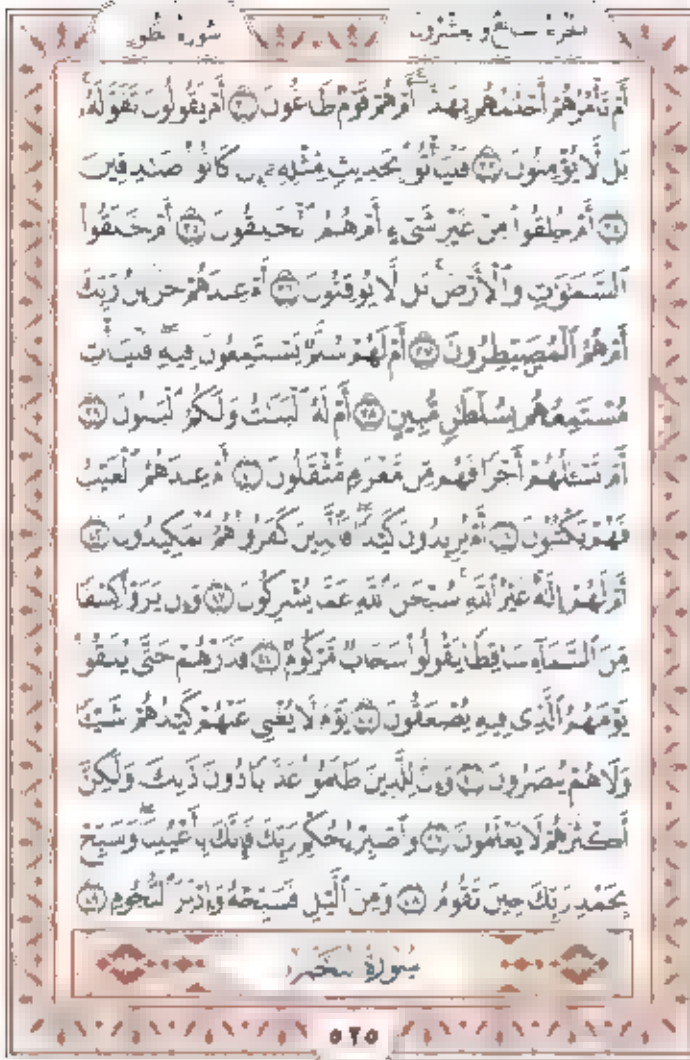 الجزء السابع والعشرون سورة الطور
أَمْ تَأْمُرُهُمْ أَحْلَٰمُهُم بِهَٰذَآ أَمْ هُمْ قَوْمٌ طَاغُونَ ٣٢ أَمْ يَقُولُونَ تَقَوَّلَهُۥ
بَل لَّا يُؤْمِنُونَ ٣٣ فَلْيَأْتُوا۟ بِحَدِيثٍ مِّثْلِهِۦٓ إِن كَانُوا۟ صَٰدِقِينَ
٣٤ أَمْ خُلِقُوا۟ مِنْ غَيْرِ شَىْءٍ أَمْ هُمُ ٱلْخَٰلِقُونَ ٣٥ أَمْ خَلَقُوا۟
ٱلسَّمَٰوَٰتِ وَٱلْأَرْضَ بَل لَّا يُوقِنُونَ ٣٦ أَمْ عِندَهُمْ خَزَآئِنُ رَبِّكَ
أَمْ هُمُ ٱلْمُصَۣيْطِرُونَ ٣٧ أَمْ لَهُمْ سُلَّمٌ يَسْتَمِعُونَ فِيهِ فَلْيَأْتِ
مُسْتَمِعُهُم بِسُلْطَٰنٍ مُّبِينٍ ٣٨ أَمْ لَهُ ٱلْبَنَٰتُ وَلَكُمُ ٱلْبَنُونَ ٣٩
أَمْ تَسْـَٔلُهُمْ أَجْرًا فَهُم مِّن مَّغْرَمٍ مُّثْقَلُونَ ٤٠ أَمْ عِندَهُمُ ٱلْغَيْبُ
فَهُمْ يَكْتُبُونَ ٤١ أَمْ يُرِيدُونَ كَيْدًا فَٱلَّذِينَ كَفَرُوا۟ هُمُ ٱلْمَكِيدُونَ ٤٢
أَمْ لَهُمْ إِلَٰهٌ غَيْرُ ٱللَّهِ سُبْحَٰنَ ٱللَّهِ عَمَّا يُشْرِكُونَ ٤٣ وَإِن يَرَوْا۟ كِسْفًا
مِّنَ ٱلسَّمَآءِ سَاقِطًا يَقُولُوا۟ سَحَابٌ مَّرْكُومٌ ٤٤ فَذَرْهُمْ حَتَّىٰ يُلَٰقُوا۟
يَوْمَهُمُ ٱلَّذِى فِيهِ يُصْعَقُونَ ٤٥ يَوْمَ لَا يُغْنِى عَنْهُمْ كَيْدُهُمْ شَيْـًٔا
وَلَا هُمْ يُنصَرُونَ ٤٦ وَإِنَّ لِلَّذِينَ ظَلَمُوا۟ عَذَابًا دُونَ ذَٰلِكَ وَلَٰكِنَّ
أَكْثَرَهُمْ لَا يَعْلَمُونَ ٤٧ وَٱصْبِرْ لِحُكْمِ رَبِّكَ فَإِنَّكَ بِأَعْيُنِنَا وَسَبِّحْ
بِحَمْدِ رَبِّكَ حِينَ تَقُومُ ٤٨ وَمِنَ ٱلَّيْلِ فَسَبِّحْهُ وَإِدْبَٰرَ ٱلنُّجُومِ ٤٩
سورة النجم
٥٢٥